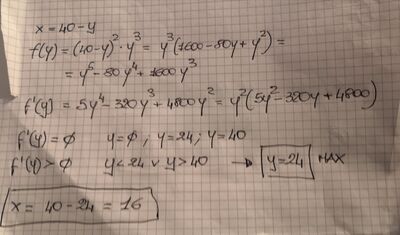 x = 40 - y
f(y) = (40-y)² · y³ = y³(1600 - 80y + y²) =
= y⁵ - 80y⁴ + 1600y³
f'(y) = 5y⁴ - 320y³ + 4800y² = y²(5y² - 320y + 4800)
f'(y) = 0 y=0 ; y=24 ; y=40
f'(y) > 0 y < 24 ∨ y > 40 → y=24 MAX
x = 40 - 24 = 16